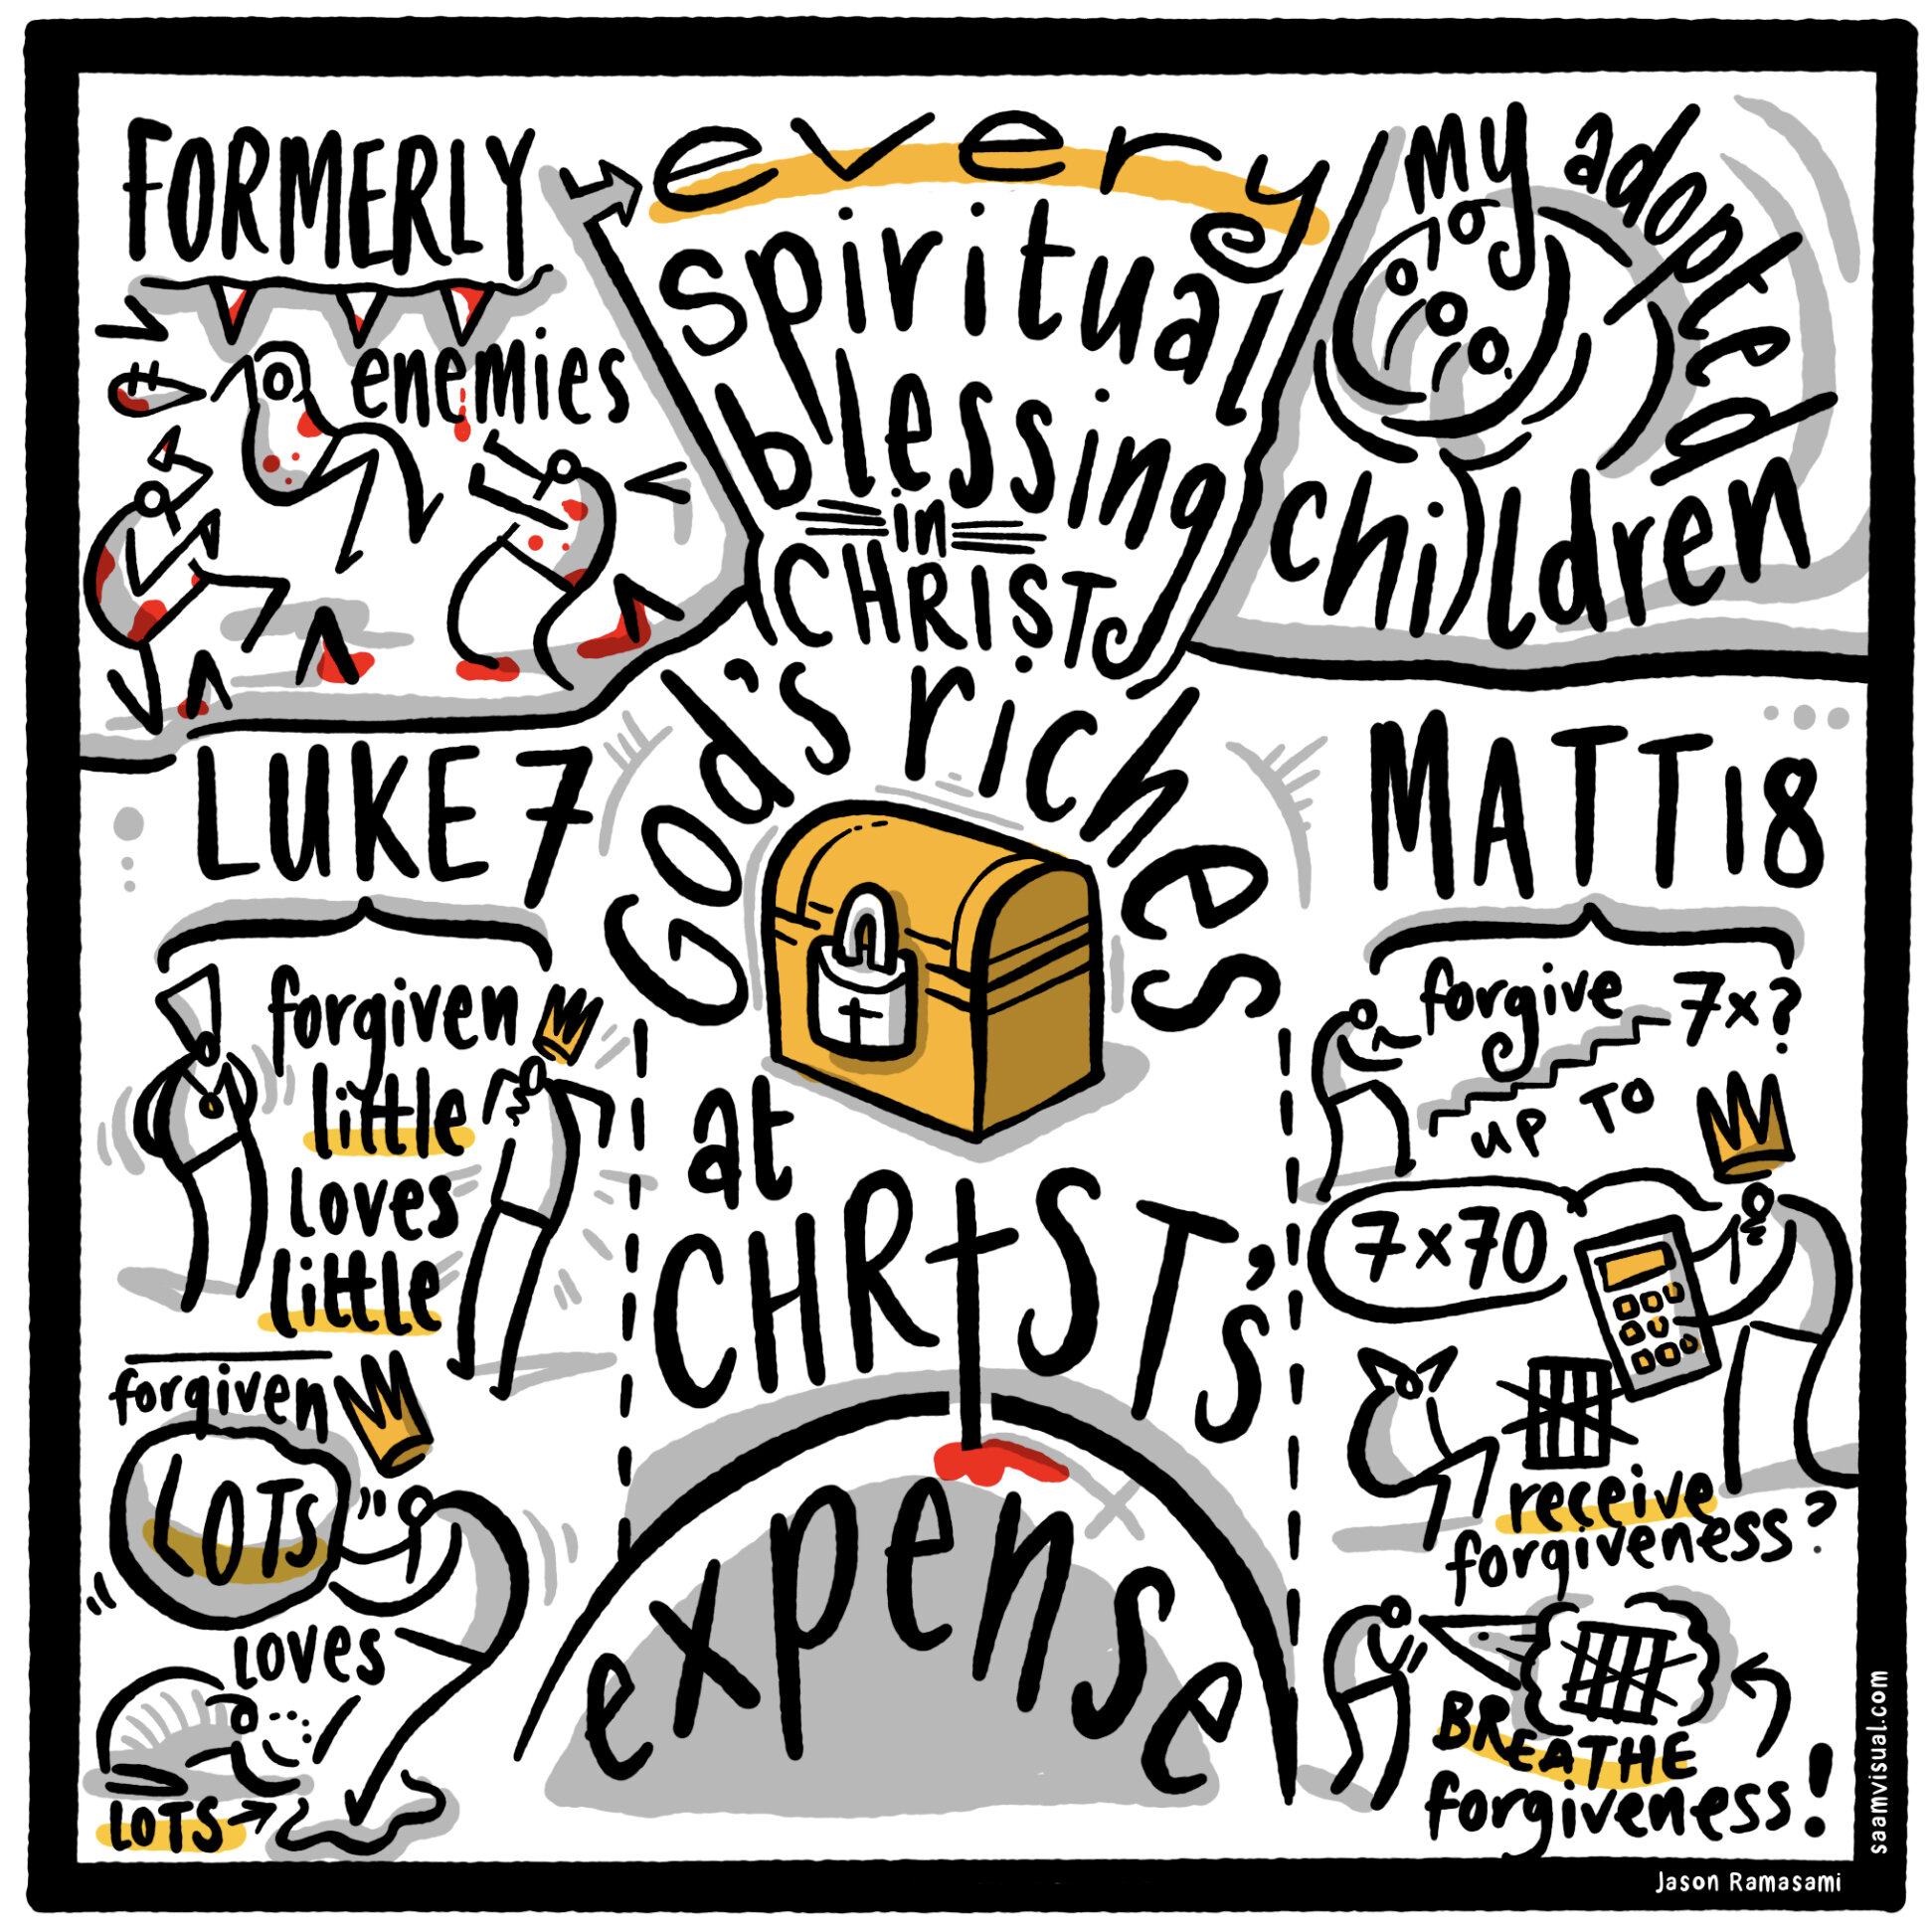 FORMERLY
enemies
every
spiritual
blessing
in
CHRIST
my adopted
children
God's riches
at
CHRIST'S
expense
LUKE 7
forgiven
little
loves
little
forgiven
LOTS
loves
LOTS
MATT 18
forgive 7x?
UP TO
7x70
receive
forgiveness?
BREATHE
forgiveness!
saamvisual.com
Jason Ramasami